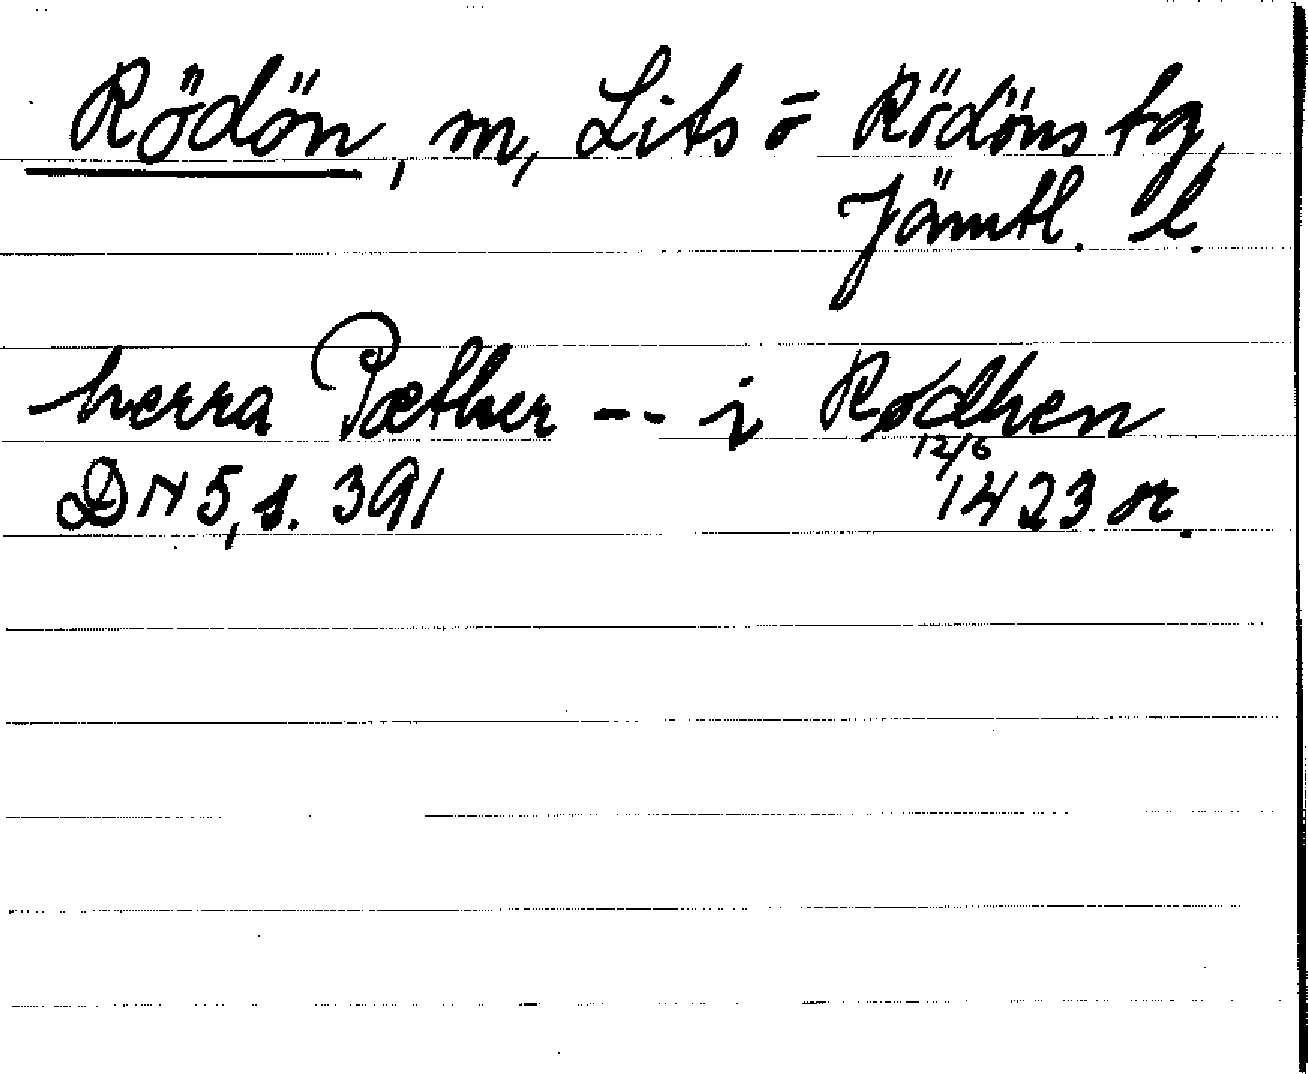 Rödön, sn, Lits o Rödöns tg,
Jämtl. l.
herra Pæther -- i Rødhen
12/6
DN 5, s. 391 1423 or.